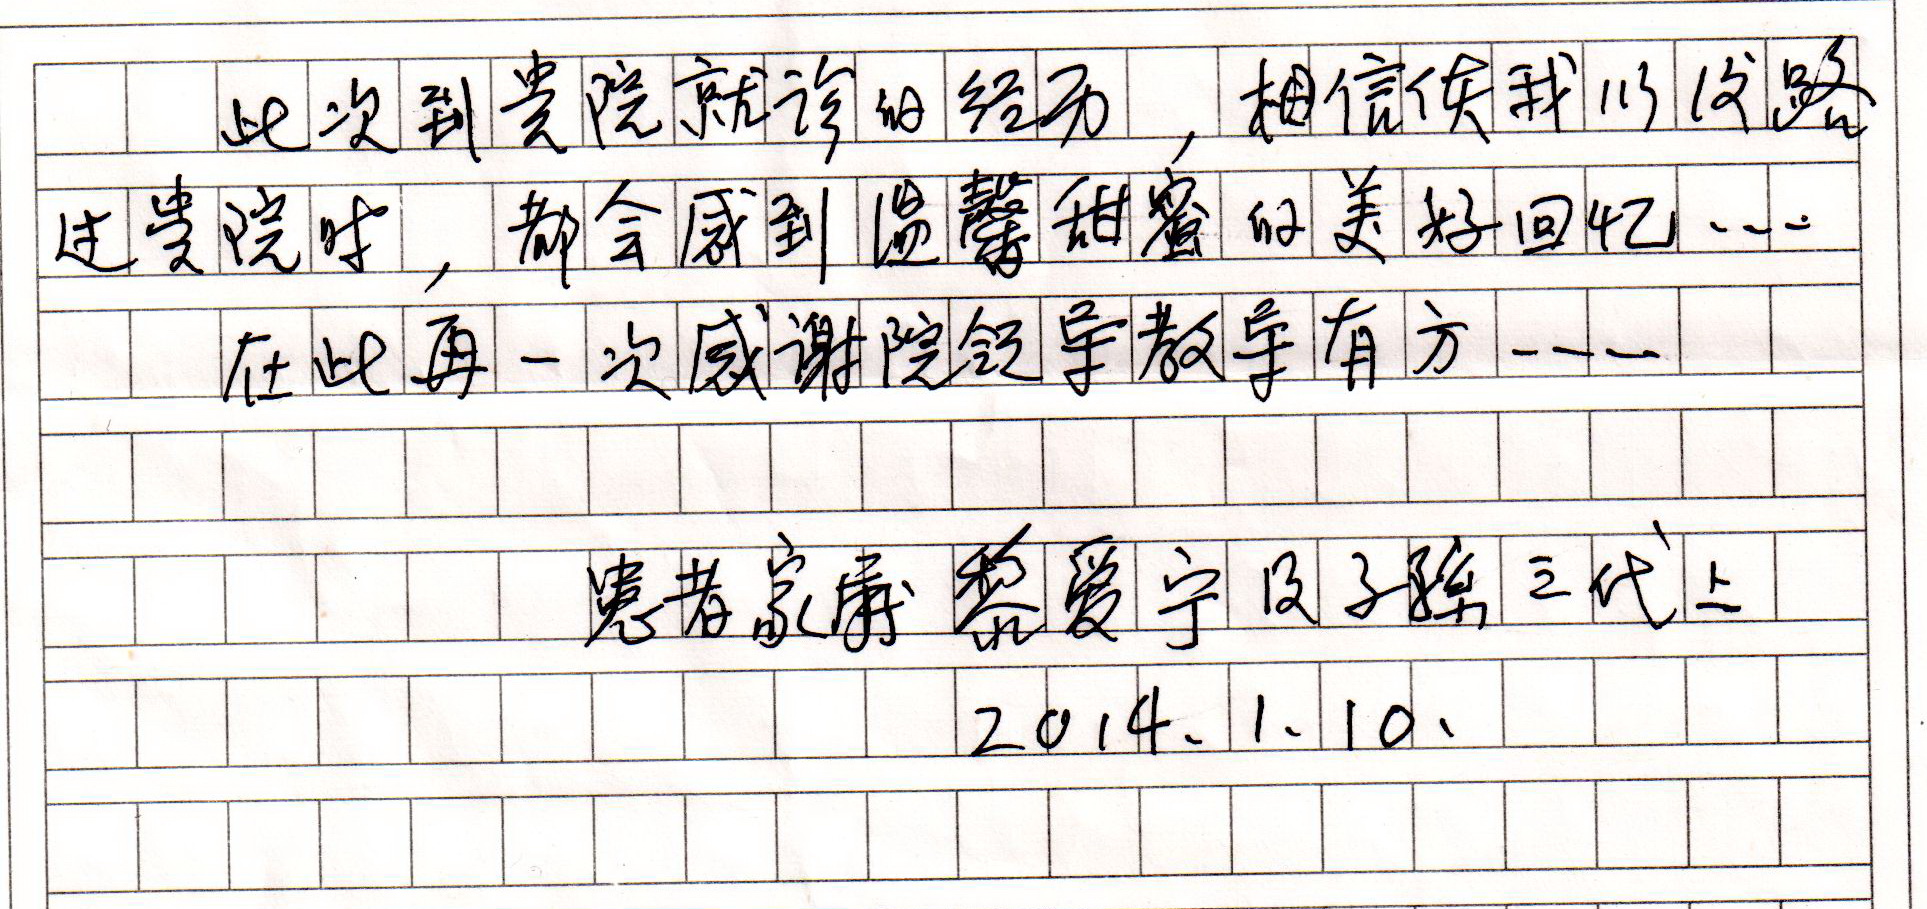 此次到贵院就诊的经历，相信使我们每路
过贵院时，都会感到温馨甜蜜的美好回忆……
在此再一次感谢院领导教导有方……
患者家属 黎爱宁及子孙三代上
2014.1.10.